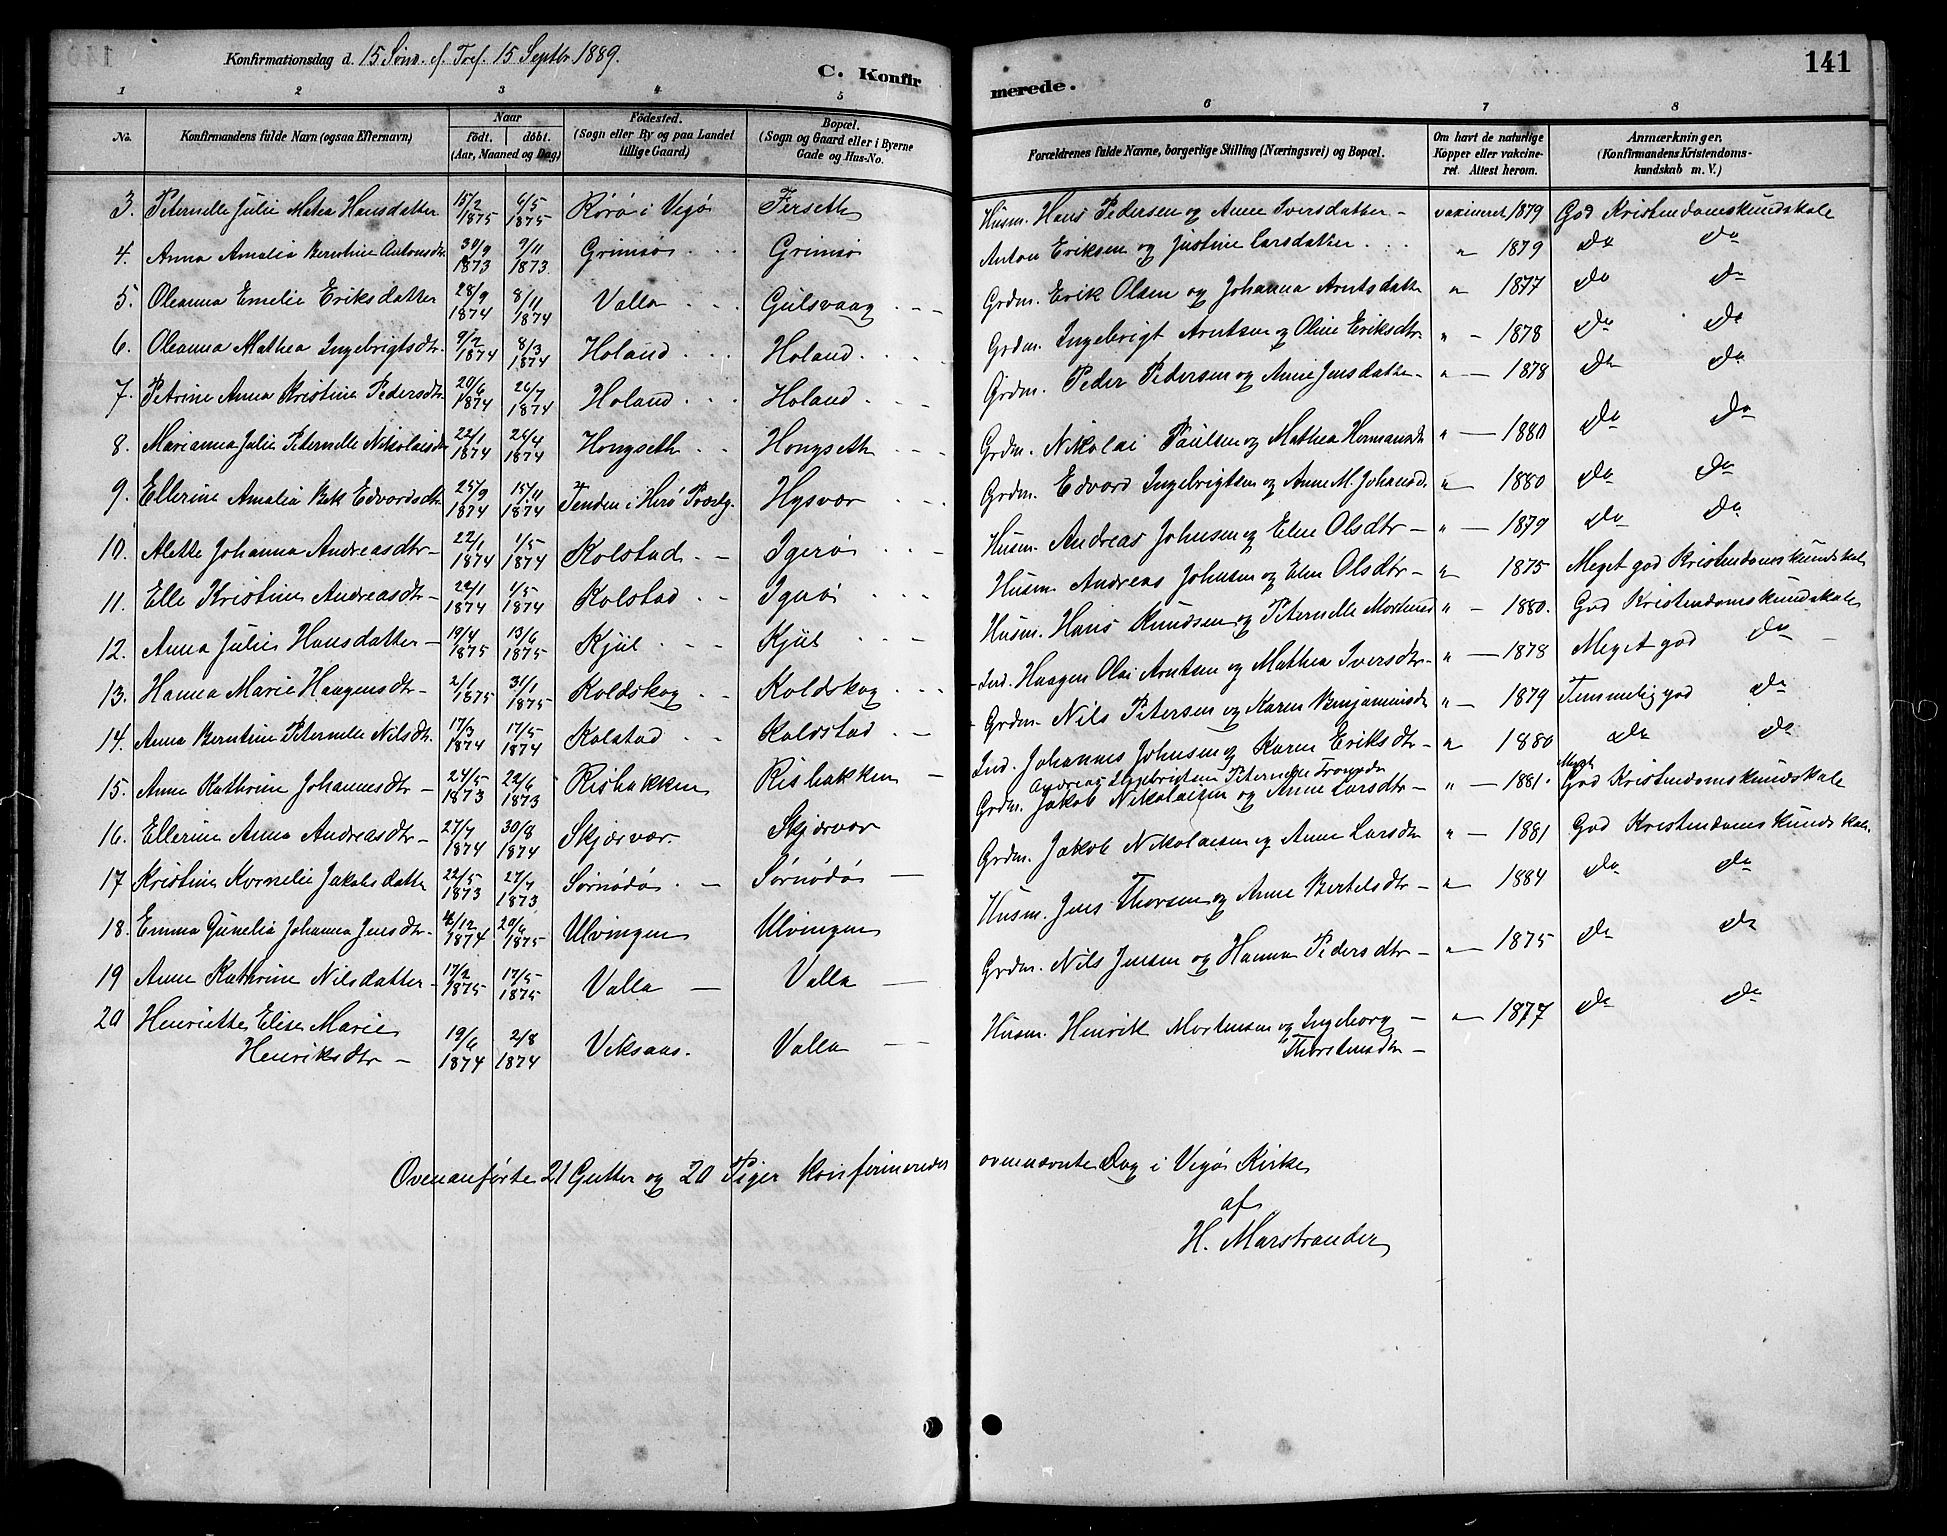 Konfirmationsdag d. 15 Sønd. ef. Tref. 15 Septbr 1889.
C. Konfirmerede.
141
1 2 3 4 5 6 7 8
No. Konfirmandens fulde Navn (ogsaa Efternavn) Naar født. døbt. (Aar, Maaned og Dag) Fødested. (Sogn eller By og paa Landet tillige Gaard) Bopæl. (Sogn og Gaard eller i Byerne Gade og Hus-No. Forældrenes fulde Navne, borgerlige Stilling (Næringsvei) og Bopæl. Om havt de naturlige Kopper eller vakcineret. Attest herom. Anmærkninger. (Konfirmandens Kristendomskundskab m. V.)
3. Peternelle Julie Matea Hansdatter 15/2 1875 6/5 1875 Rørø i Vegø Ferseth Husm. Hans Pedersen og Anne Iversdatter - vaxineret 1879 God Kristendomskundskab
4. Anna Amalia Berntine Antonsdtr. 30/9 1873 9/11 1873. Grimsø Grimsø Anton Eriksen og Justine Larsdatter " 1879 do do
5. Oleanna Emelie Eriksdatter 28/9 1874 8/11 1874 Valla Gulsvaag Grdm. Erik Olsen og Johanna Arntsdatter " 1877 do do
6. Oleanna Mathea Ingebrigtsdtr. 9/2 1874 8/3 1874 Holand Holand Grdm. Ingebrigt Arntsen og Oline Eriksdtr. " - 1878 do do
7. Petrine Anna Kristine Pedersdtr 20/6 1874 26/7 1874 Holand Holand Grdm. Peder Pedersen og Anne Jensdatter - " - 1878 do do
8. Marianna Julie Peternelle Nikolaisdtr 22/1 1874 26/4 1874 Hongseth Hongseth Grdm. Nikolai Paulsen og Mathea Hermansdtr " - 1880 do do
9. Ellerine Amalia Bek Edvardsdtr. 25/9 1874 15/11 1874 Tenden i Herø Præstg. Hysvær Grdm. Edvard Ingebrigtsen og Anne M. Johansd. " 1880 do do
10. Alette Johanna Andreasdtr - 22/1 1874 1/5 1874 Kolstad Igerø Husm. Andreas Johnsen og Elen Olsdtr - " - 1879 do do
11. Elle Kristine Andreasdtr - 22/1 1874 1/5 1874 Kolstad Igerø Husm. Andreas Johnsen og Elen Olsdtr - " 1875 Meget god Kristendomskundskab
12. Anna Julie Hansdatter - 19/4 1875 13/6 1875 Kjul Kjul Husm. Hans Knudsen og Peternelle Mortensd " - 1880. God Kristendomskundskab
13. Hanna Marie Haagensdtr - 2/1 1875 31/1 1875 Koldskog Koldskog Ind. Haagen Olai Arntsen og Mathea Iversdtr - " - 1878 Meget god do
14. Anna Berntine Peternelle Nilsdtr. 17/3 1874 17/5 1874 Kolstad Koldstad Grdm. Nils Petersen og Karen Benjaminsdtr " - 1879 Temmelig god do
15. Anne Kathrine Johannesdtr - 24/5 1873 22/6 1873 Risbakken Risbakken Ind. Johannes Johnsen og Karen Eriksdtr - " 1880 do do
16. Ellerine Anna Andreasdtr - 27/7 1874 30/8 1874 Skjærvær. Skjærvær Andreas Ingebrigtsen Peternelle
Grdm. Jakob Nikolaisen og Anne Larsdtr - " - 1881. Meget God Kristendomskundskab
17 Kristine Kornelie Jakobsdatter 22/5 1873 27/7 1873 Sørnødø Sørnødø Grdm. Jakob Nikolaisen og Anne Larsdtr " - 1881 God Kristendomskundskab.
18. Emma Gunelia Johanna Jensdtr. 4/12 1874 20/6 1875 Ulvingen Ulvingen Husm. Jens Thorsen og Anne Bertelsdtr - " 1884 do do
19 Anne Kathrine Nilsdatter - 17/2 1875 17/5 1875 Valla - Valla - Grdm. Nils Jensen og Hanna Pedersdtr - " 1875 do do
20 Henriette Elise Marie
Henriksdtr - 19/6 1874 2/8 1874 Viksaas. Valla - Husm. Henrik Mortensen og Ingeborg
Thorstensdtr - " 1877 do do
Ovenanførte 21 Gutter og 20 Piger konfirmerede ovennævnte Dag i Vegø Kirke
af
H. Marstrander